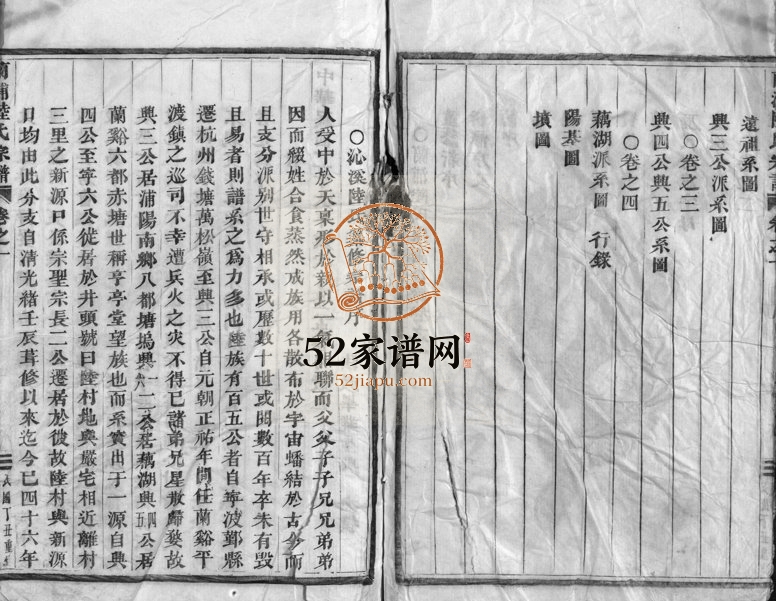 遠祖系圖
興三公派系圖
○卷之三
興四公興五公系圖
○卷之四
藕湖派系圖 行錄
陽基圖
墳圖
○沁溪陸
人受中於天稟形於親以一聯而父父子子兄兄弟弟
因而綴姓合食蒸然成族用各散布於宇宙蟠結於古今而
且支分派別世守相承或歷數十世或閱數百年卒未有毀
且易者則譜系之為力多也陸族有百五公者自寧波鄞縣
遷杭州錢塘萬松嶺至興三公自元朝正祐年間任蘭谿平
渡鎮之巡司不幸遭兵火之灾不得已諸弟兄星散歸婺故
興三公居浦陽南鄉八都塘塢興二公居藕湖興四五公居
蘭谿六都赤塘世稱亭亭堂望族也而系實出于一源自興
四公至寧六公徙居於井頭號曰陸村地與嚴宅相近離村
三里之新源口係宗聖宗長二公遷居於彼故陸村與新源
口均由此分支自清光緒壬辰葺修以來迄今已四十六年
蘭浦陸氏宗譜
卷之一
民國丁丑重
52家谱网
52jiapu.com